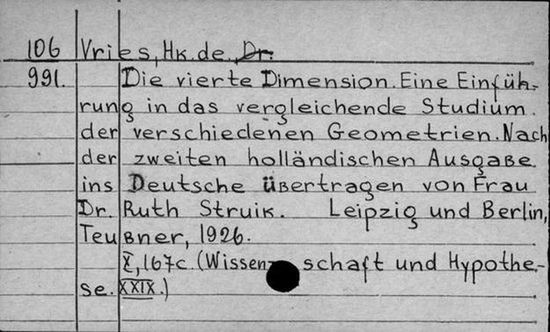 106 Vries, Hk. de., Dr.
991. Die vierte Dimension. Eine Einfüh-
rung in das vergleichende Studium.
der verschiedenen Geometrien. Nach
der zweiten holländischen Ausgabe
ins Deutsche übertragen von Frau
Dr. Ruth Struik. Leipzig und Berlin,
Teubner, 1926.
X, 167c. (Wissen- schaft und Hypothe-
se. XXIX.)